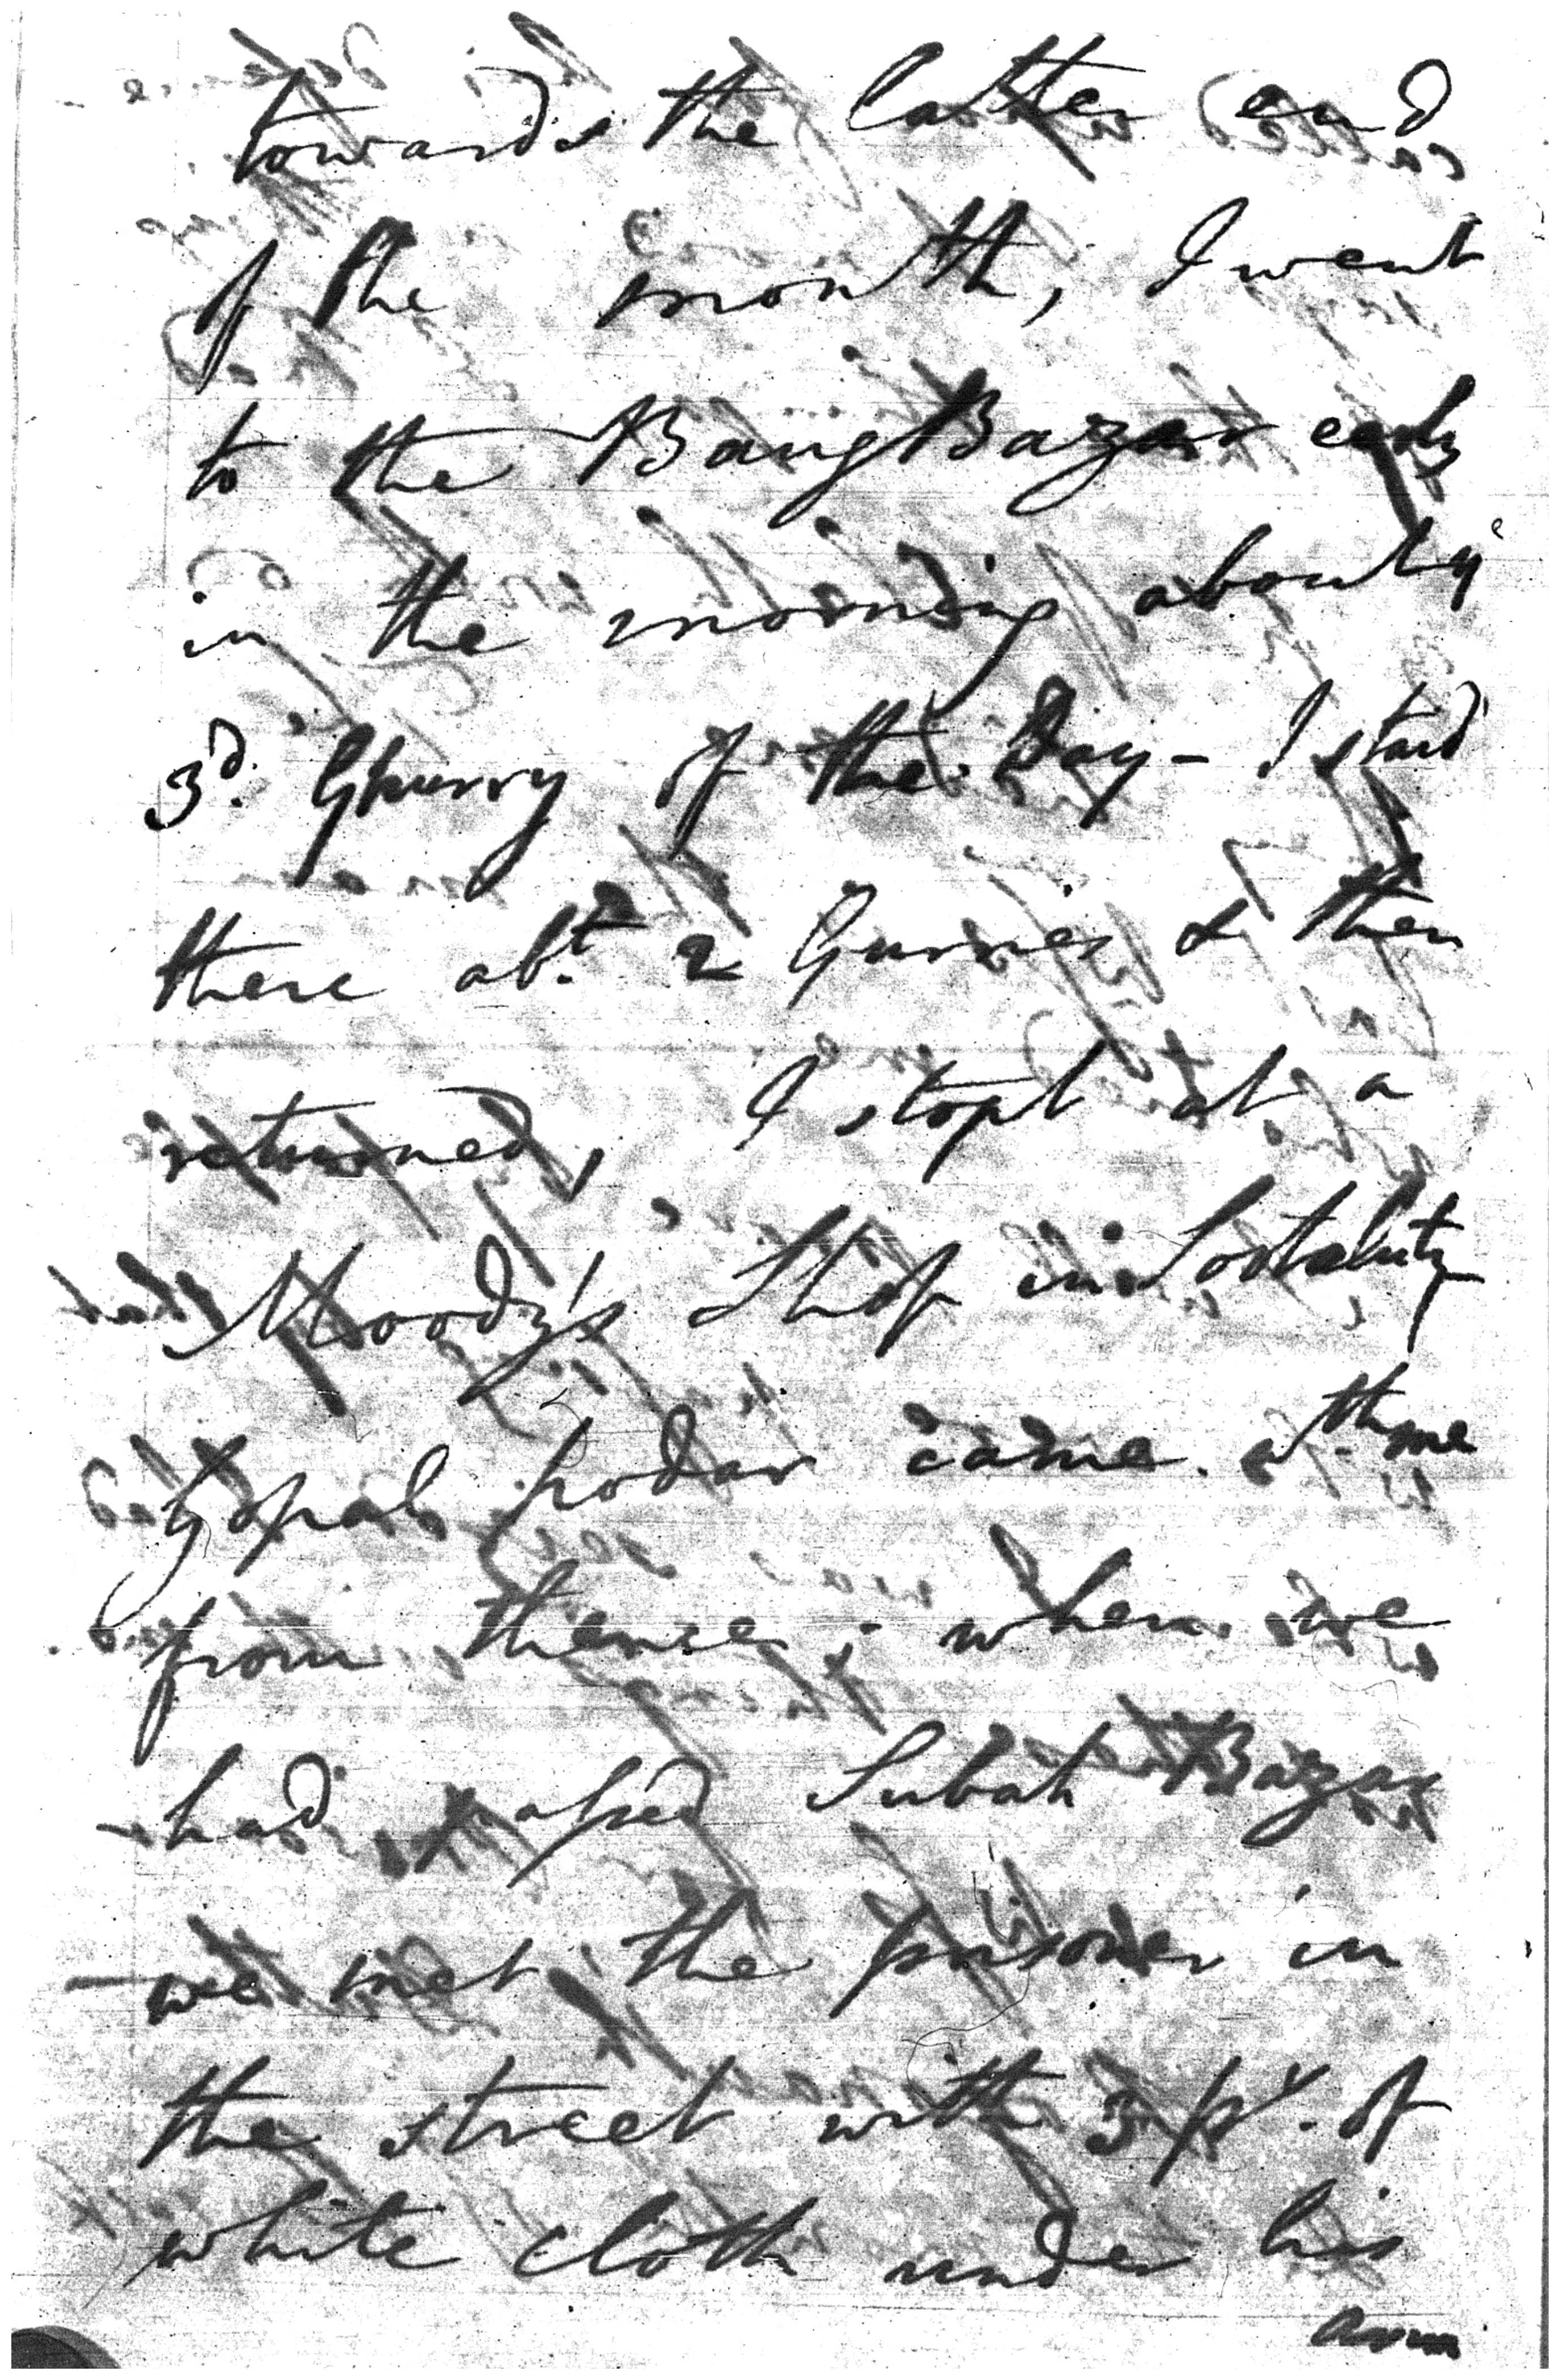 towards the latter end
of the month, I went
to the Baug Bazar early
in the morning about yᵉ
3ᵈ. Ghurry of the Day - I staid
there abᵗ. 2 Gurries & then
returned, I stopt at a
Moody's Shop in
Gopal podar came wᵗʰ me
from thence, when we
had passed Subah Bazar
we met the prisoner in
the street with 3 pˢ. of
white cloth under his
arm